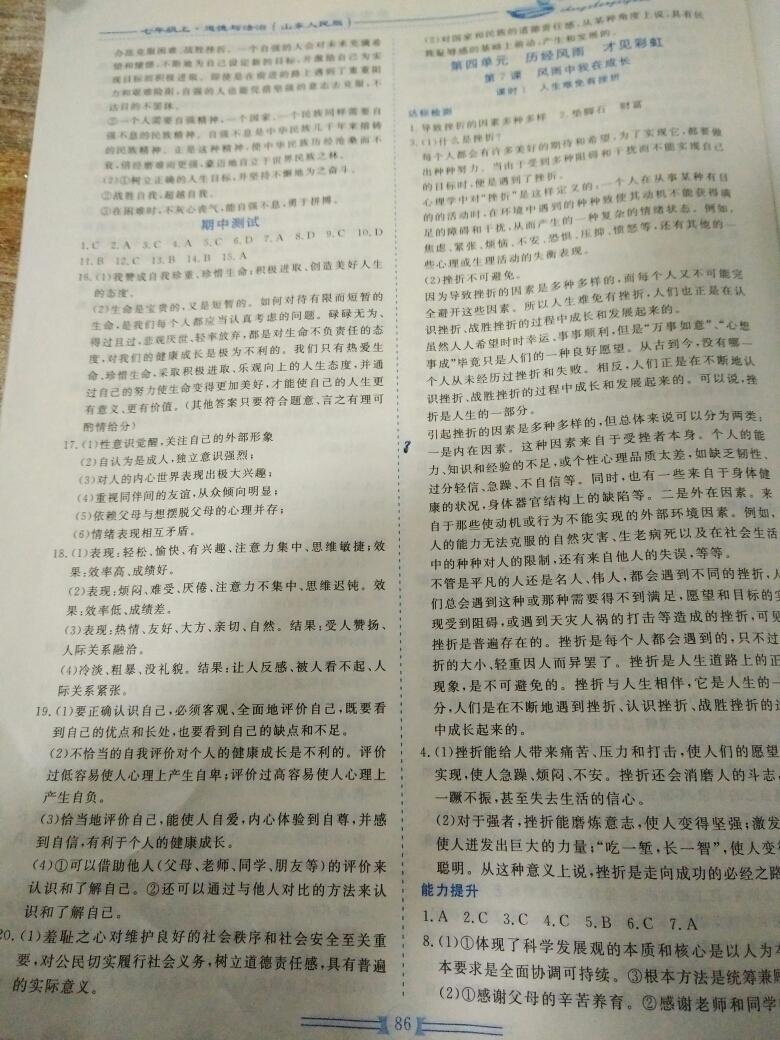 七年级上·道德与法治(山东人民版)
办法克服困难、战胜挫折。一个自强的人会对未来充满希
望和憧憬,不断地为自己设定新的目标,并激励自己为实
现目标而积极进取。即使是在前进的路上遇到了重重阻
力和艰难险阻,自强的人也能凭借坚强的意志去克服,不
达目的不罢休。
②一个人需要自强精神,一个国家、一个民族同样需要自
强不息的民族精神。自强不息是中华民族几千年来熔铸
的民族精神。正是这种精神,使中华民族历经沧桑而不
衰,倍经磨难而更强,豪迈地自立于世界民族之林。
(2)①树立正确的人生目标,并坚持不懈地为之奋斗。
②战胜自我,超越自我。
③在困难时,不灰心丧气,能自强不息,勇于拼搏。
期中测试
1.C 2.A 3.C 4.A 5.C 6.D 7.A 8.D 9.C 10.D
11.B 12.C 13.B 14.B 15.A
16.(1)我赞成自我珍重、珍惜生命;积极进取、创造美好人生
的态度。
(2)生命是宝贵的,又是短暂的。如何对待有限而短暂的
生命,是我们每个人都应当认真考虑的问题。碌碌无为、
得过且过,悲观厌世、轻率放弃,都是对生命不负责任的态
度,对我们的健康成长是极为不利的。我们只有热爱生
命、珍惜生命,采取积极进取、乐观向上的人生态度,并通
过自己的努力使生命变得更加美好,才能使自己的人生更
有意义、更有价值。(其他答案只要符合题意、言之有理可
酌情给分)
17.(1)性意识觉醒,关注自己的外部形象
(2)自认为是成人,独立意识强烈;
(3)对人的内心世界表现出极大兴趣;
(4)重视同伴间的友谊,从众倾向明显;
(5)依赖父母与想摆脱父母的心理并存;
(6)情绪表现相互矛盾。
18.(1)表现:轻松、愉快、有兴趣、注意力集中、思维敏捷;效
果:效率高、成绩好。
(2)表现:烦闷、难受、厌倦、注意力不集中、思维迟钝。效
果:效率低、成绩差。
(3)表现:热情、友好、大方、亲切、自然。结果:受人赞扬、
人际关系融洽。
(4)冷淡、粗暴、没礼貌。结果:让人反感、被人看不起、人
际关系紧张。
19.(1)要正确认识自己,必须客观、全面地评价自己,既要看
到自己的优点和长处,也要看到自己的缺点和不足。
(2)不恰当的自我评价对个人的健康成长是不利的。评价
过低容易使人心理上产生自卑;评价过高容易使人心理上
产生自负。
(3)恰当地评价自己,能使人自爱,内心体验到自尊,并感
到自信,有利于个人的健康成长。
(4)①可以借助他人(父母、老师、同学、朋友等)的评价来
认识和了解自己。②还可以通过与他人对比的方法来认
识和了解自己。
20.(1)羞耻之心对维护良好的社会秩序和社会安全至关重
要,对公民切实履行社会义务,树立道德责任感,具有普遍
的实际意义。
(2)对国家和民族的道德责任感,从某种角度上说,具有优
耻辱感的基础上萌动、产生和发展的。
第四单元 历经风雨 才见彩虹
第7课 风雨中我在成长
课时1 人生难免有挫折
达标检测
1.导致挫折的因素多种多样 2.垫脚石 财富
3.(1)什么是挫折?
每个人都会有许多美好的期待和希望,为了实现它,都要做
出种种努力。当由于受到多种阻碍和干扰而不能实现自己
的目标时,便是遇到了挫折。
心理学中对“挫折”是这样定义的:一个人在从事某种有目
的的活动时,在环境中遇到的种种致使其动机不能获得满
足的障碍和干扰,从而产生的一种复杂的情绪状态。例如,
焦虑、紧张、烦恼、不安、恐惧、压抑、愤怒等,还有其他的一
些心理或生理活动的失衡表现。
(2)挫折不可避免。
因为导致挫折的因素是多种多样的,而每个人又不可能完
全避开这些因素。所以人生难免有挫折,人们也正是在认
识挫折、战胜挫折的过程中成长和发展起来的。
虽然人人希望时时幸运、事事顺利,但是“万事如意”、“心想
事成”毕竟只是人们的一种良好愿望。从古到今,没有哪一
个人从未经历过挫折和失败。相反,人们正是在不断地认
识挫折、战胜挫折的过程中成长和发展起来的。可以说,挫
折是人生的一部分。
引起挫折的因素是多种多样的,但总体来说可以分为两类:
一是内在因素。这种因素来自于受挫者本身。个人的能
力、知识和经验的不足,或个性心理品质太差,如缺乏韧性、
过分轻信、急躁、不自信等。同时,也有一些来自于身体健
康的状况,身体器官结构上的缺陷等。二是外在因素。来
自于那些使动机或行为不能实现的外部环境因素。例如,
人的能力无法克服的自然灾害、生老病死以及在社会生活
中的种种对人的限制,还有来自他人的失误,等等。
不管是平凡的人还是名人、伟人,都会遇到不同的挫折,人
们总会遇到这种或那种需要得不到满足,愿望和目标的实
现受到阻碍,或遇到天灾人祸的打击等造成的挫折,可见
挫折是普遍存在的。挫折是每个人都会遇到的,只不过
折的大小、轻重因人而异罢了。挫折是人生道路上的正
现象,是不可避免的。挫折与人生相伴,它是人生的一
分,人们是在不断地遇到挫折、认识挫折、战胜挫折的
中成长起来的。
4.(1)挫折能给人带来痛苦、压力和打击,使人们的愿望
实现,使人急躁、烦闷、不安。挫折还会消磨人的斗志,
一蹶不振,甚至失去生活的信心。
(2)对于强者,挫折能磨炼意志,使人变得坚强;激发
使人迸发出巨大的力量;“吃一堑,长一智”,使人变
聪明。从这种意义上说,挫折是走向成功的必经之路
能力提升
1.A 2.C 3.C 4.C 5.B 6.C 7.A
8.(1)①体现了科学发展观的本质和核心是以人为本
本要求是全面协调可持续。③根本方法是统筹兼顾
(2)①感谢父母的辛苦养育。②感谢老师和同学
86